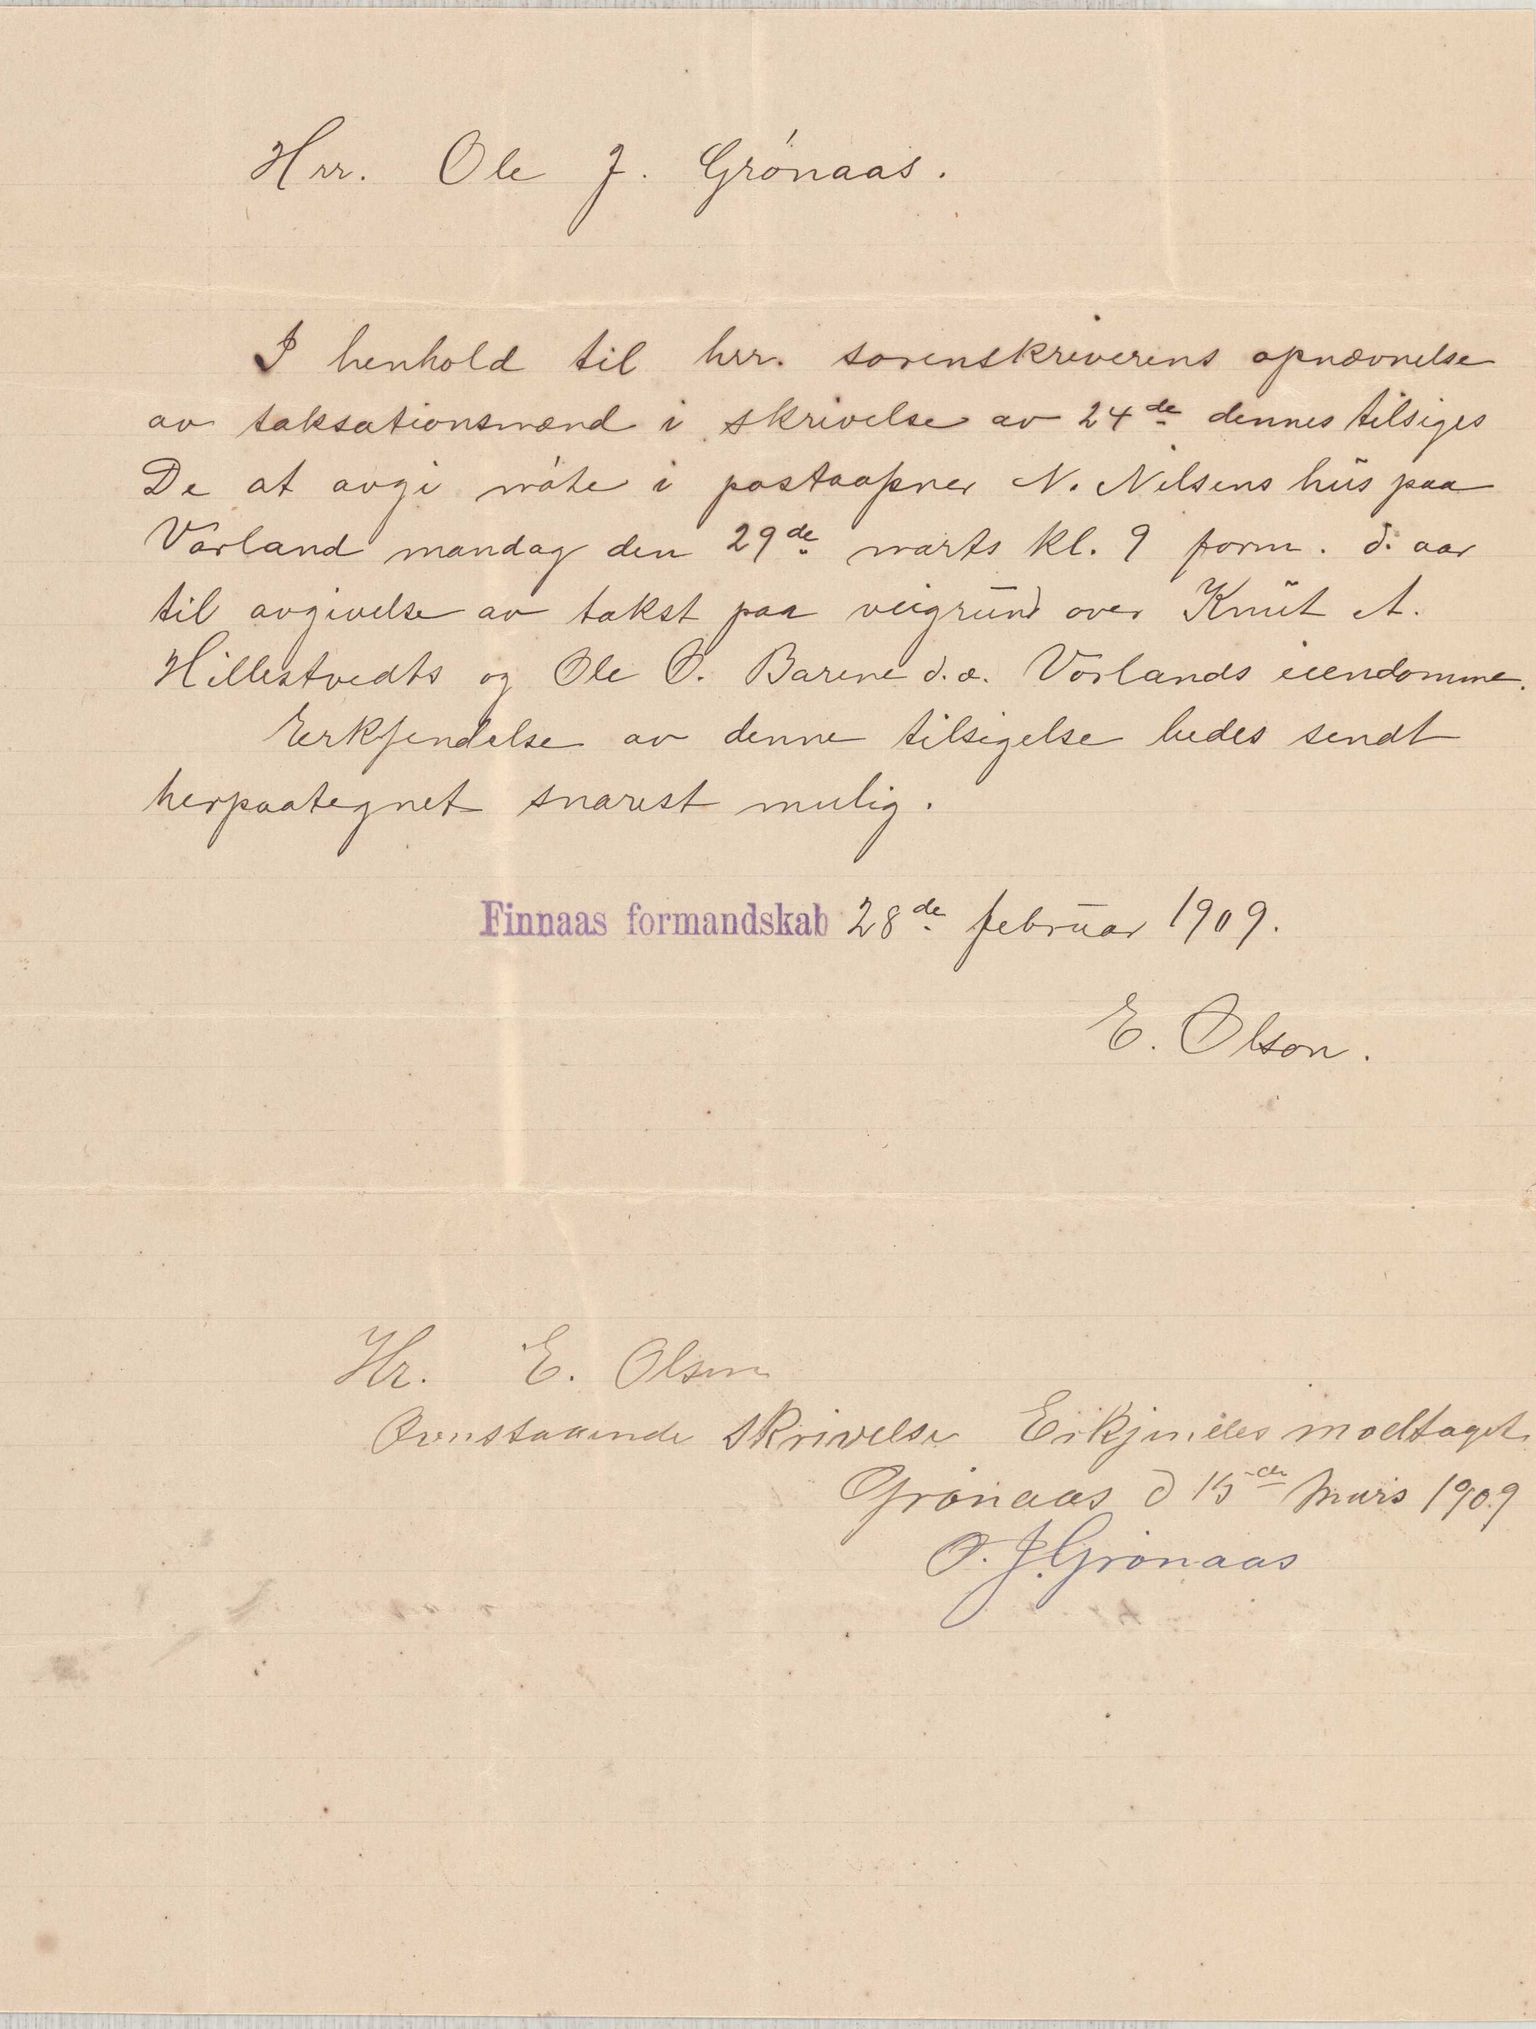 Hrr. Ole J. Grónaas.
I henhold til hrr. sorenskriverens opnævnelse
av taksationsmænd i skrivelse av 24de dennes tilsiges
De at avgi móte i postaapner N. Nilsens hus paa
Vorland mandag den 29de marts kl. 9 form. d. aar
til avgivelse av takst paa veigrund over Knut A.
Hillestvedts og Ole O. Barene d.æ. Vorlands eiendomme.
Erkjendelse av denne tilsigelse bedes sendt
herpaategnet snarest mulig.
Finnaas formandskab 28de februar 1909.
E. Olson.
Hr. E. Olson
Ovenstaaende skrivelse Erkjendes modtaget.
Grönaas d 15de Mars 1909
O. J. Grönaas